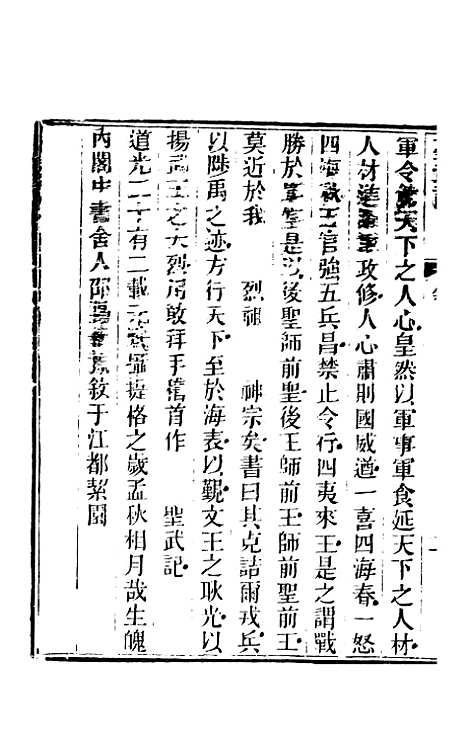 軍令飭天下之人心皇然以軍事軍食延天下之人材
人材進則軍政修人心肅則國威遒一喜四海春一怒
四海秋五官強五兵昌禁止令行四夷來王是之謂戰
勝於廟堂是以後聖師前聖後王師前王師前聖前王
莫近於我 烈祖 神宗矣書曰其克詰爾戎兵
以陟禹之迹方行天下至於海表以覲文王之耿光以
揚武王之大烈用敢拜手稽首作 聖武記
道光二十有二載元默攝提格之歲孟秋相月哉生魄
內閣中書舍人邵陽魏源敘于江都絜園